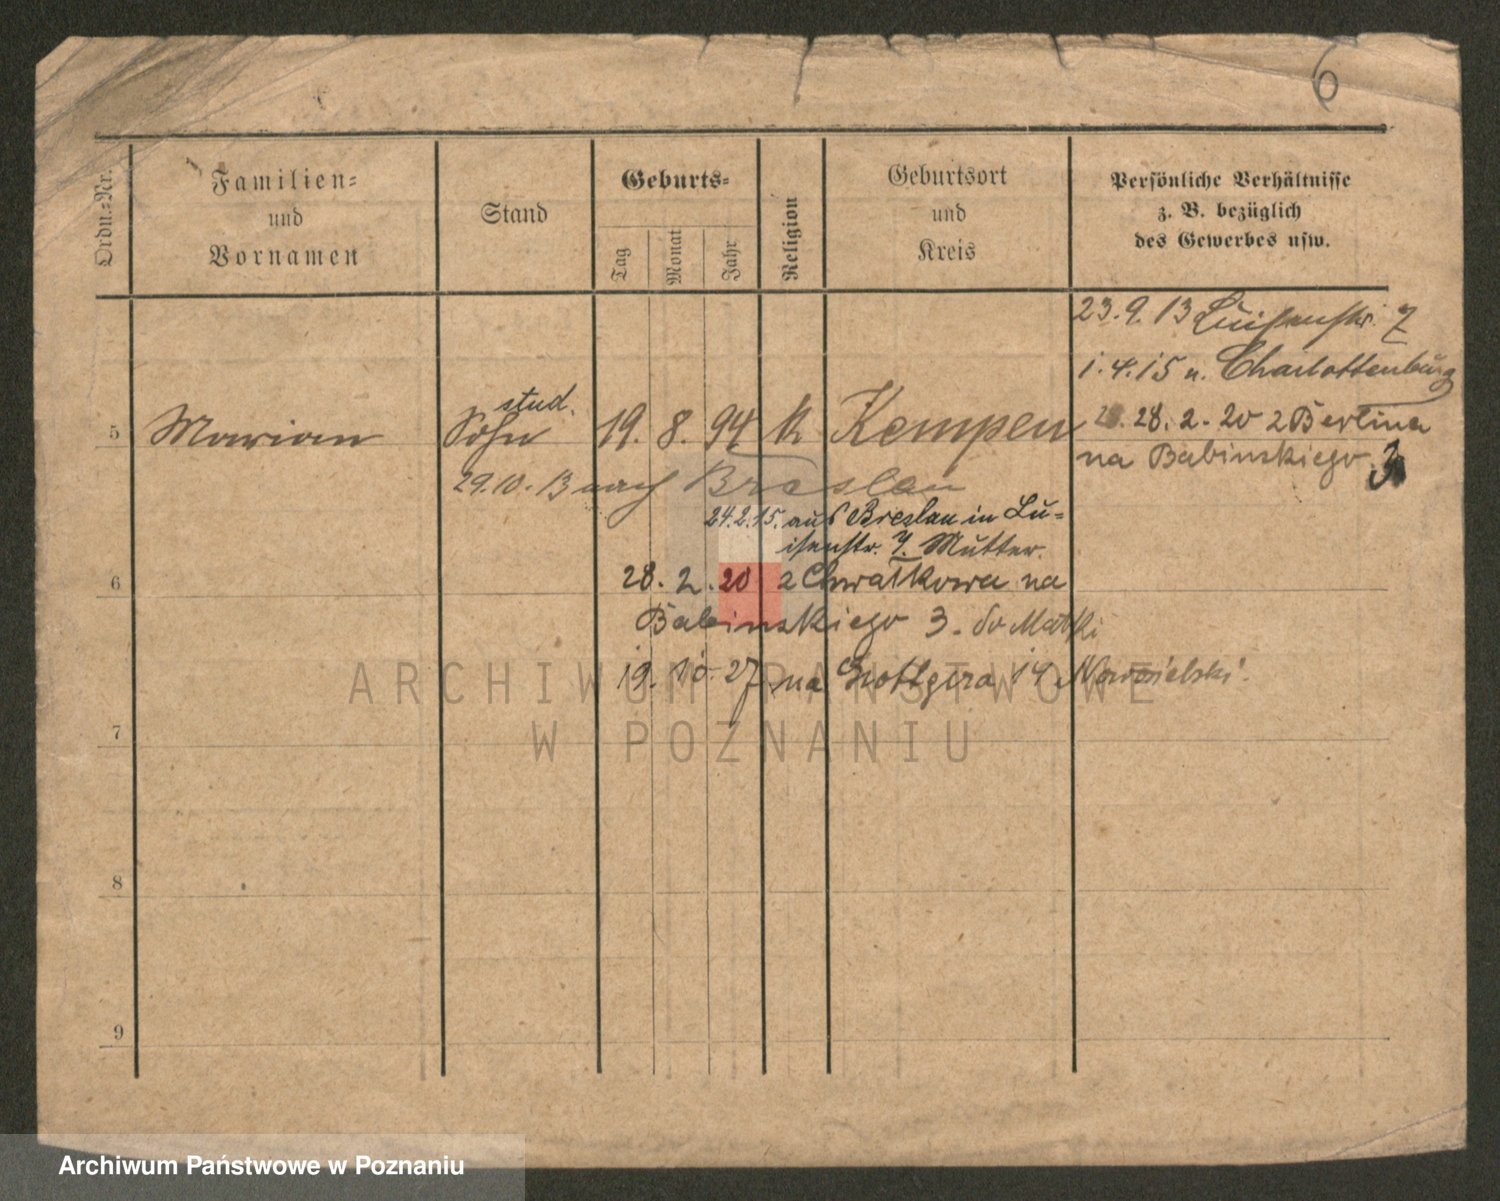 6
Ordn.-Nr.
Familien-
und
Vornamen
Stand
Geburts-
Tag
Monat
Jahr
Religion
Geburtsort
und
Kreis
Persönliche Verhältnisse
z. B. bezüglich
des Gewerbes usw.
23.9.13 Luisenstr. 7
1.4.15 n. Charlottenburg
stud.
5 Marian Sohn 19. 8. 94 k Kempen
28.2.20 z Berlina
na Babinskiego 3
29.10.13 nach Breslau
24.2.15. aus Breslau in Lu-
isenstr. 7. Mutter.
6 28.2.20 z Chwałkowa na
Babinskiego 3. do Matki
19.10.27 na Grottgera 14 Nowosielski.
7
8
9
ARCHIWUM PAŃSTWOWE
W POZNANIU
Archiwum Państwowe w Poznaniu